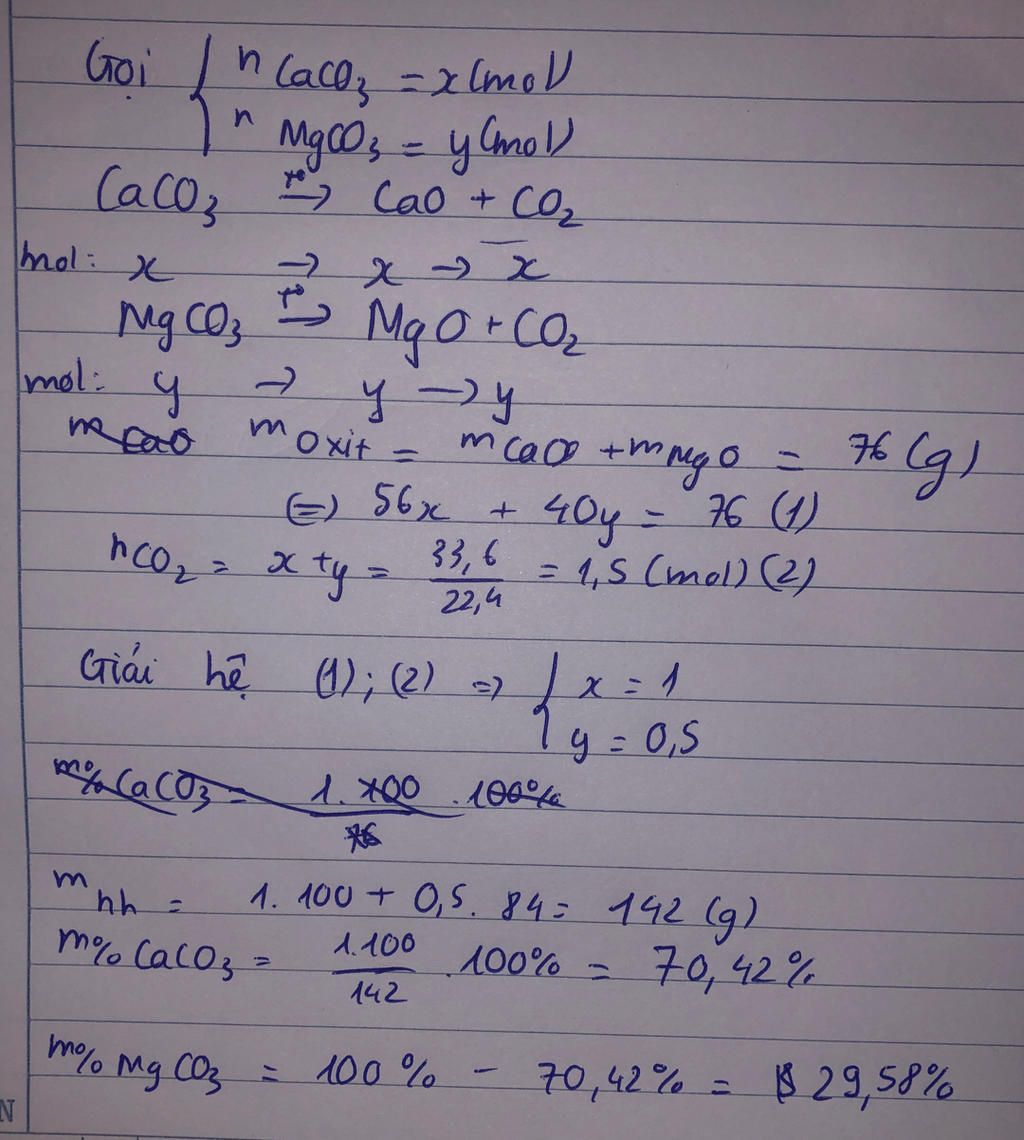 Gọi { n CaCO3 = x (mol)
n MgCO3 = y (mol)
CaCO3 t°→ CaO + CO2
mol: x → x → x
MgCO3 t°→ MgO + CO2
mol: y → y → y
mCaO m oxit = mCaO + mMgO = 76 (g)
(=) 56x + 40y = 76 (1)
nCO2 = x + y = 33,6 / 22,4 = 1,5 (mol) (2)
Giải hệ (1); (2) => { x = 1
y = 0,5
m% CaCO3 = 1.100 / 76 . 100%
m hh = 1. 100 + 0,5. 84 = 142 (g)
m% CaCO3 = 1.100 / 142 . 100% = 70,42%
m% MgCO3 = 100% - 70,42% = 29,58%
N